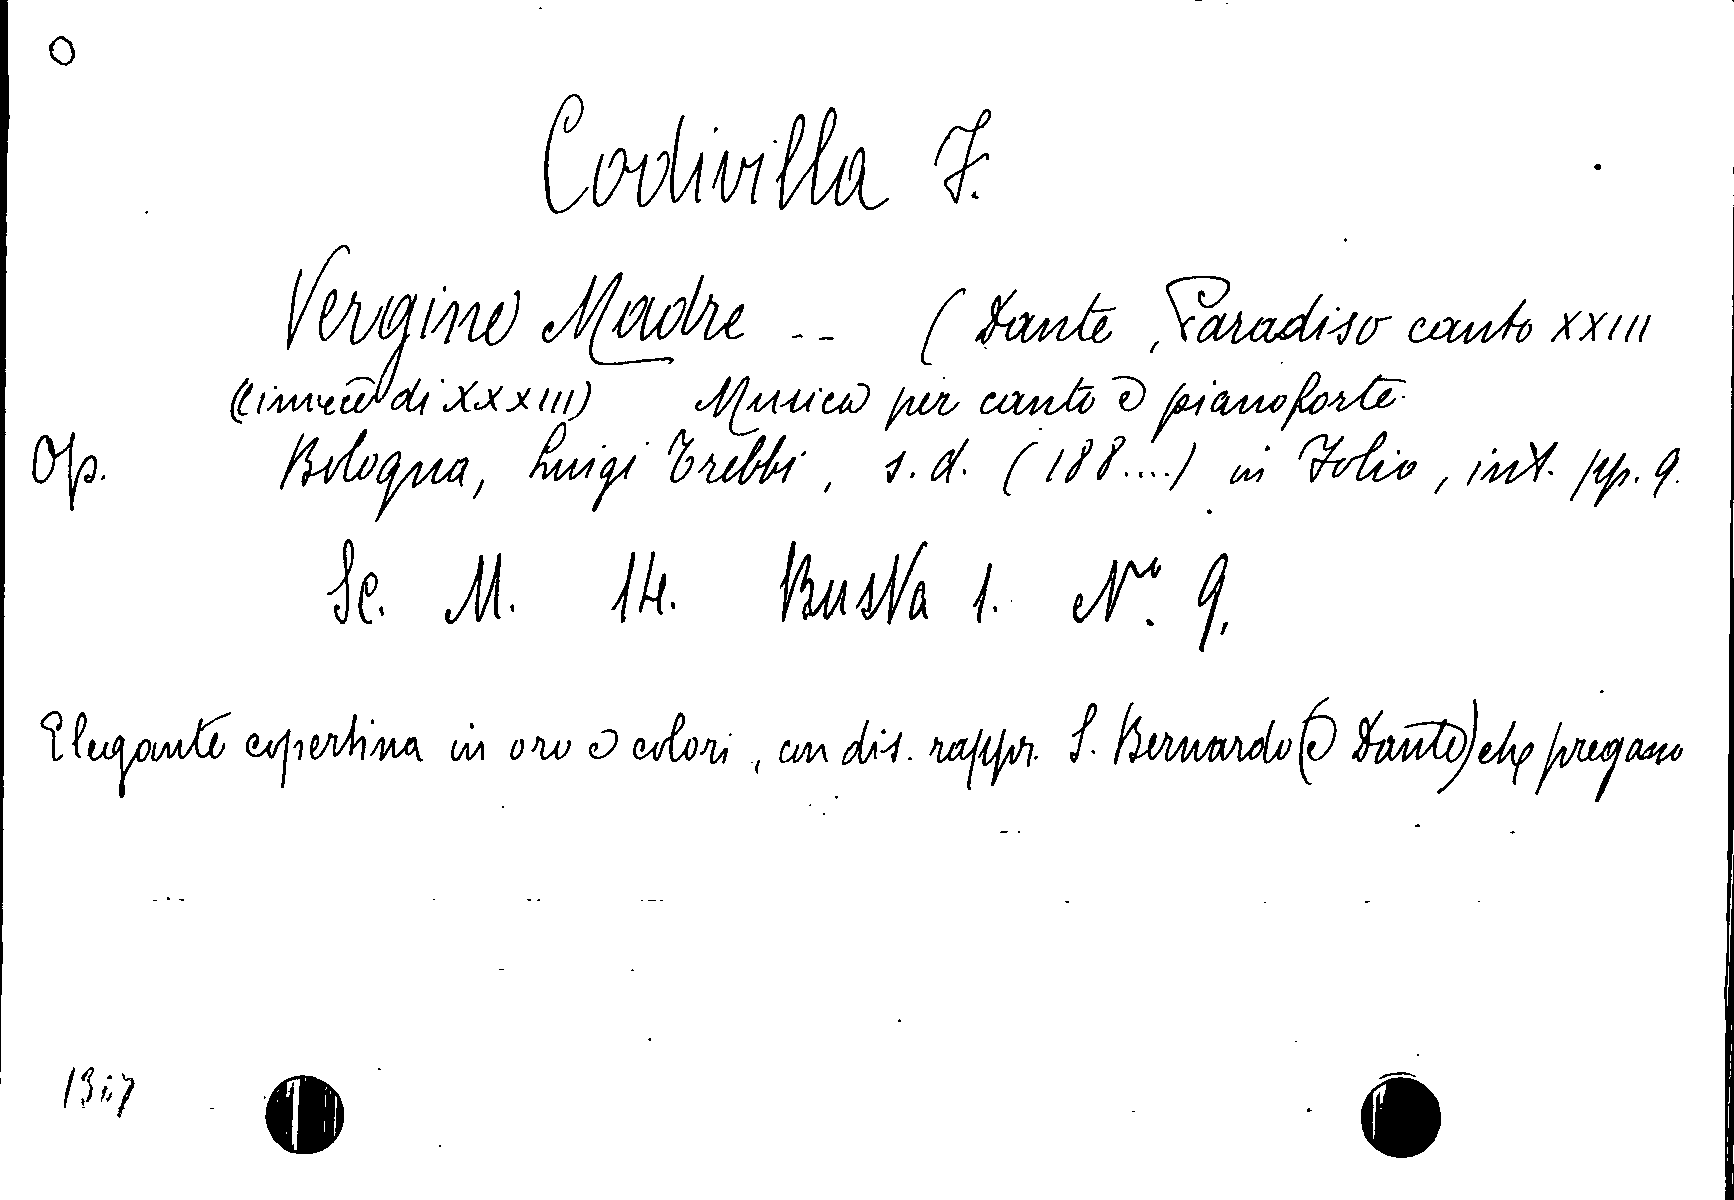 O
Codivilla F.
Vergine Madre -- (Dante, Paradiso canto XXIII
((invece di XXXIII) Musica per canto e pianoforte.
Op. Bologna, Luigi Trebbi, s. d. (188....) in Folio, int. pp. 9.
Sc. M. 14. Busta 1. No. 9.
Elegante copertina in oro e colori, con dis. rappr. S. Bernardo (e Dante) che pregano